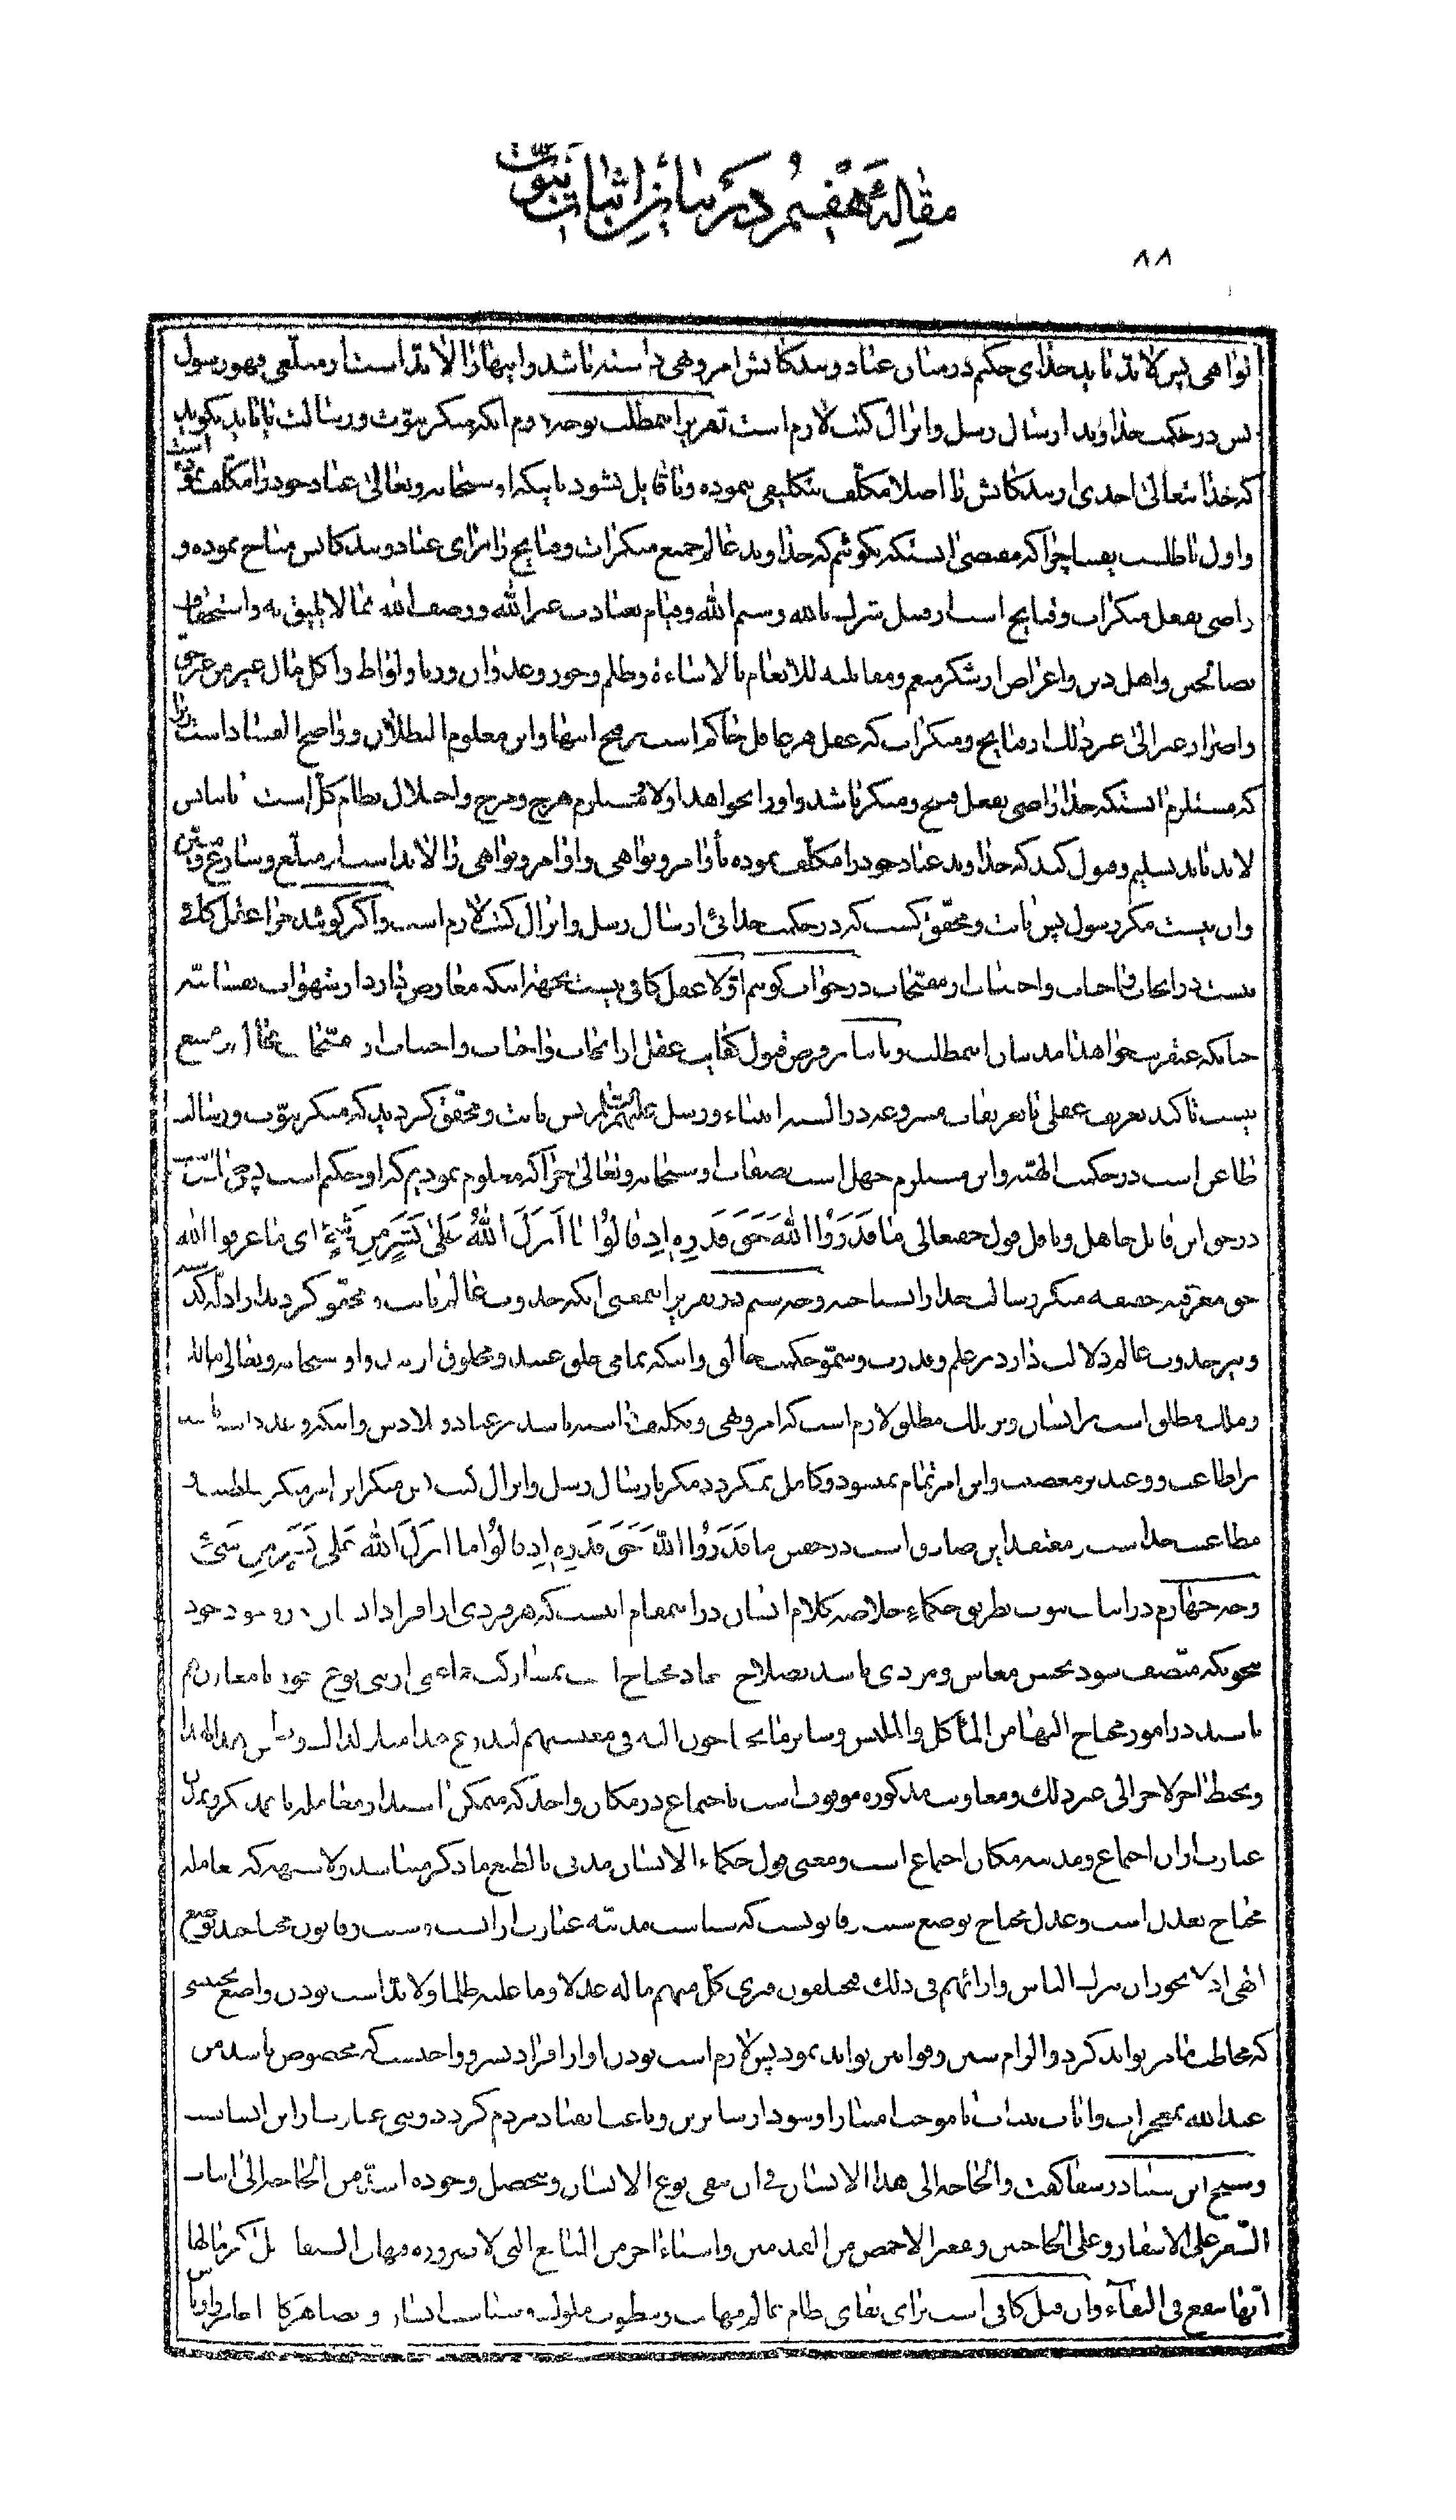 مقاله هفتم در بیان اثبات نبوت
۸۸
نواهی پس لابد باید خدای حکیم در میان عباد و بندگانش امر و نهی داشته باشد و اینها را لابد است از مبلغی فهو رسول
پس در حکمت خداوند ارسال رسل و انزال کتب لازم است تقریر اینمطلب بوجه دوم آنکه منکر نبوت و رسالت یا باید بگوید
که خدا تعالی احدی از بندگانش را اصلا مکلف بتکلیفی ننموده و یا قایل نشود باینکه او سبحانه و تعالی عباد خود را مکلف نموده است
و اول باطلست یقینا چرا که مقتضی اینستکه بگوئیم که خداوند عالم جمیع منکرات و قبایح را برای عباد و بندگانش مباح نموده و
راضی بفعل منکرات و قبایح است از قبیل شرک بالله و سبم الله و قیام بعبادت غیر الله و وصف الله بما لا یلیق به و استخفاف
بصالحین و اهل دین و اعراض از شکر منعم و مقابله للانعام بالاساءة و ظلم و جور و عدوان و زنا و لواط و اکل مال غیر من غیر حق
و اضرار غیر الی غیر ذلک از قبایح و منکرات که عقل هر عاقل حاکم است بر قبح اینها و این معلوم البطلان و واضح الفساد است زیرا
که مستلزم اینستکه خدا راضی بفعل قبیح و منکر باشد و او را بخواهد اولا و مستلزم هرج و مرج و اختلال نظام کل است ثانیا پس
لابد باید تسلیم و قبول کند که خداوند عباد خود را مکلف نموده باوامر و نواهی و اوامر و نواهی را لابد است از مبلغ و شارع و مبین
و آن نیست مگر رسول پس ثابت و محقق گشت که در حکمت خدائی ارسال رسل و انزال کتب لازم است و اگر گویند چرا عقل کافی
نیست در ایجاب واجبات و اجتناب از مقبحات در جواب گویم اولا عقل کافی نیست بجهة اینکه معارض دارد از شهوات نفسانیه
چنانکه عنقریب خواهد آمد بیان اینمطلب و ثانیا بر فرض قبول کفایت عقل از ایجاب واجبات و اجتناب از مقبحات
نیست تاکید تعریف عقلی با تعریفات مسروعه در السنه انبیاء و رسل علیهم السلام پس ثابت و محقق گردید که منکر نبوت و رسالت
طاعن است در حکمت الهیه و این مستلزم جهل است بصفات او سبحانه و تعالی چرا که معلوم نمودیم که او حکیم است پس
در حق این قایل جاهل و باطل قول حقتعالی ما قدروا الله حق قدره اذ قالوا ما انزل الله علی بشر من شئ ای ما عرفوا الله
حق معرفته حقیقه منکر رسالت خدا را نشناخته وجه سیم در تقریر اینمعنی آنکه حدوث عالم ثابت و محقق گردید از ادله گذشته
و نیز حدوث عالم دلالت دارد بر علم و قدرت و سمو حکمت خالق و اینکه تمامی خلق عبید و مخلوق و او سبحانه و تعالی مالک
و ملک مطلق است بر ایشان و بر ملک مطلق لازم است که امر و نهی و تکلیف داشته باشد بر عباد و بلادش و اینکه وعد داشته باشد
بر اطاعت و وعید بر معصیت و این امر تمام نمیشود و کامل نمیگردد مگر بارسال رسل و انزال کتب پس منکر این امر منکر سلطنت و
مطاعیت خداست و معتقد این صادق است در حقش ما قدروا الله حق قدره اذ قالوا ما انزل الله علی بشر من شئ
وجه چهارم در اثبات نبوت بطریق حکماء خلاصه کلام ایشان در اینمقام اینست که هر فردی از افراد انسان
بنحویکه متصف شود بحسن معاش و مؤدی باشد بصلاح معاد محتاج است بمشارکت جماعتی از بنی نوع خود تا معاون هم
باشند در امور محتاج الیها من المأکل و الملبس و سایر ما یحتاجون الیه فی معیشتهم
و یخیط آخر لآخر الی غیر ذلک و معاونت مذکوره موقوف است باجتماع در مکان واحد که متمکن باشند از معامله با همدیگر و تمدن
عبارت از آن اجتماع و مدینه مکان اجتماع است و معنی قول حکماء الانسان مدنی بالطبع ما ذکر میباشد و لا شبهه که معامله
محتاج بعدل است و عدل محتاج بوضع سنت و قانونست که سیاست مدنیه عبارت از آنست و سنت و قانون محتاجند بوضع
الهی اذ لا یجوز ان یترک الناس و ارائهم فی ذلک فیختلفون فیری کل منهم ما له عدلا و ما علیه ظلما و لابد است بودن واضع بحیثی
که مخاطبه با مردم تواند کرد و الزام سنن و قوانین تواند نمود پس لازم است بودن او از افراد بشر و واجبست که مخصوص باشد من
عند الله بمعجزات و آیات بینات تا موجب امتیاز او شود از سایرین و باعث انقیاد مردم گردد و نبی عبارت از این انسانست
و شیخ ابن سینا در شفا گفت و الحاجة الی هذا الانسان فی ان یبقی نوع الانسان و یتحصل وجوده اشد من الحاجة الی انبات
الشعر علی الاشفار و علی الحاجبین و تقعیر الاخمص من القدمین و اشیاء اخر من المنافع التی لا ضرورة فیها فی البقاء بل اکثر ما لها
انها تنفع فی البقاء و آن قبل کافی است برای بقای نظام عالم